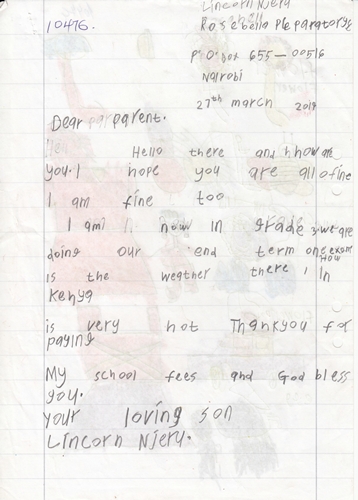 Lincorn Njeru
10476.
Rosebella Preparatory
P.O Box 655-00516
Nairobi
27th march 2019
Dear parent.
Hello there and hhow are
you. I hope you are all ofine
I am fine too
I am I now in grade 3 we are
doing our end term one exam
How
is the weather there ? In
Kenya
is very hot Thankyou for
paying
My school fees and God bless
you.
your loving son
Lincorn Njeru.